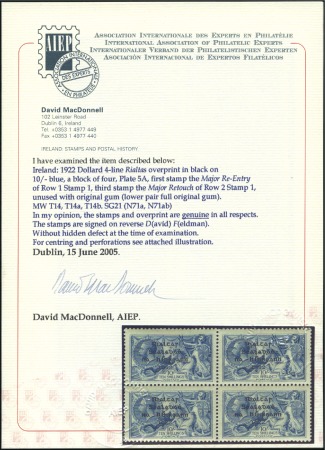 ASSOCIATION INTERNATIONALE DES EXPERTS EN PHILATÉLIE
INTERNATIONAL ASSOCIATION OF PHILATELIC EXPERTS
INTERNATIONALER VERBAND DER PHILATELISTISCHEN EXPERTEN
ASOCIACIÓN INTERNACIONAL DE EXPERTOS FILATÉLICOS
AIEP
David MacDonnell
102 Leinster Road
Dublin 6, Ireland
Tel. +0353 1 4977 449
Fax +0353 1 4977 440
IRELAND: STAMPS AND POSTAL HISTORY
I have examined the item described below:
Ireland; 1922 Dollard 4-line Rialtas overprint in black on
10/- blue, a block of four, Plate 5A, first stamp the Major Re-Entry
of Row 1 Stamp 1, third stamp the Major Retouch of Row 2 Stamp 1,
unused with original gum (lower pair full original gum).
MW T14, T14a, T14b. SG21 (N71a, N71ab)
In my opinion, the stamps and overprint are genuine in all respects.
The stamps are signed on reverse D(avid) F(eldman).
Without hidden defect at the time of examination.
For centring and perforations see attached illustration.
Dublin, 15 June 2005.
David MacDonnell
David MacDonnell, AIEP.